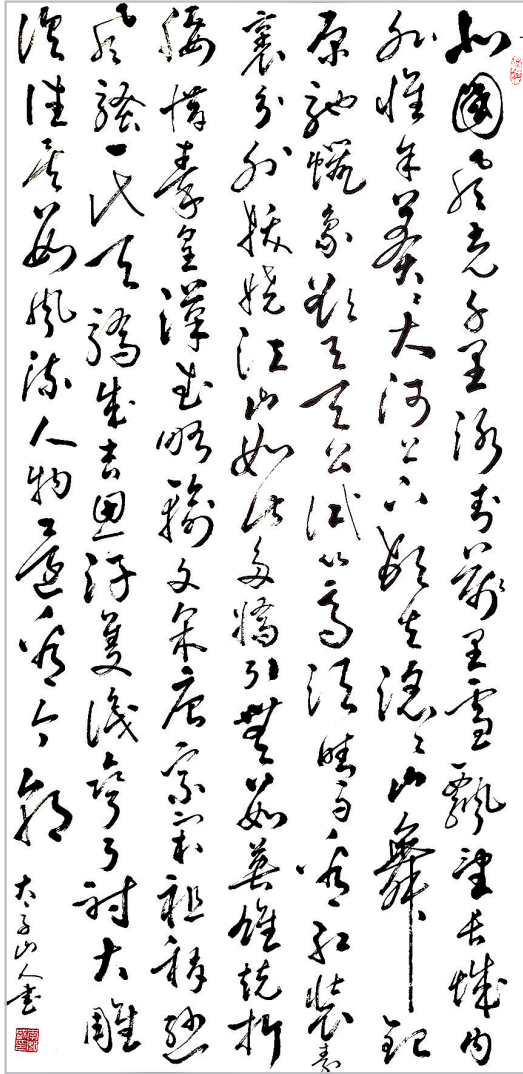 北國風光千里冰封萬里雪飄望長城內
外惟余莽〻大河上下頓失滔〻山舞銀
原馳蠟象欲與天公試比高須晴日看紅裝素
裹分外妖嬈江山如此多嬌引無數英雄競折
腰惜秦皇漢武略輸文采唐宗宋祖稍遜
風騷一代天驕成吉思汗隻識彎弓射大雕
俱往矣數風流人物還看今朝
山人書